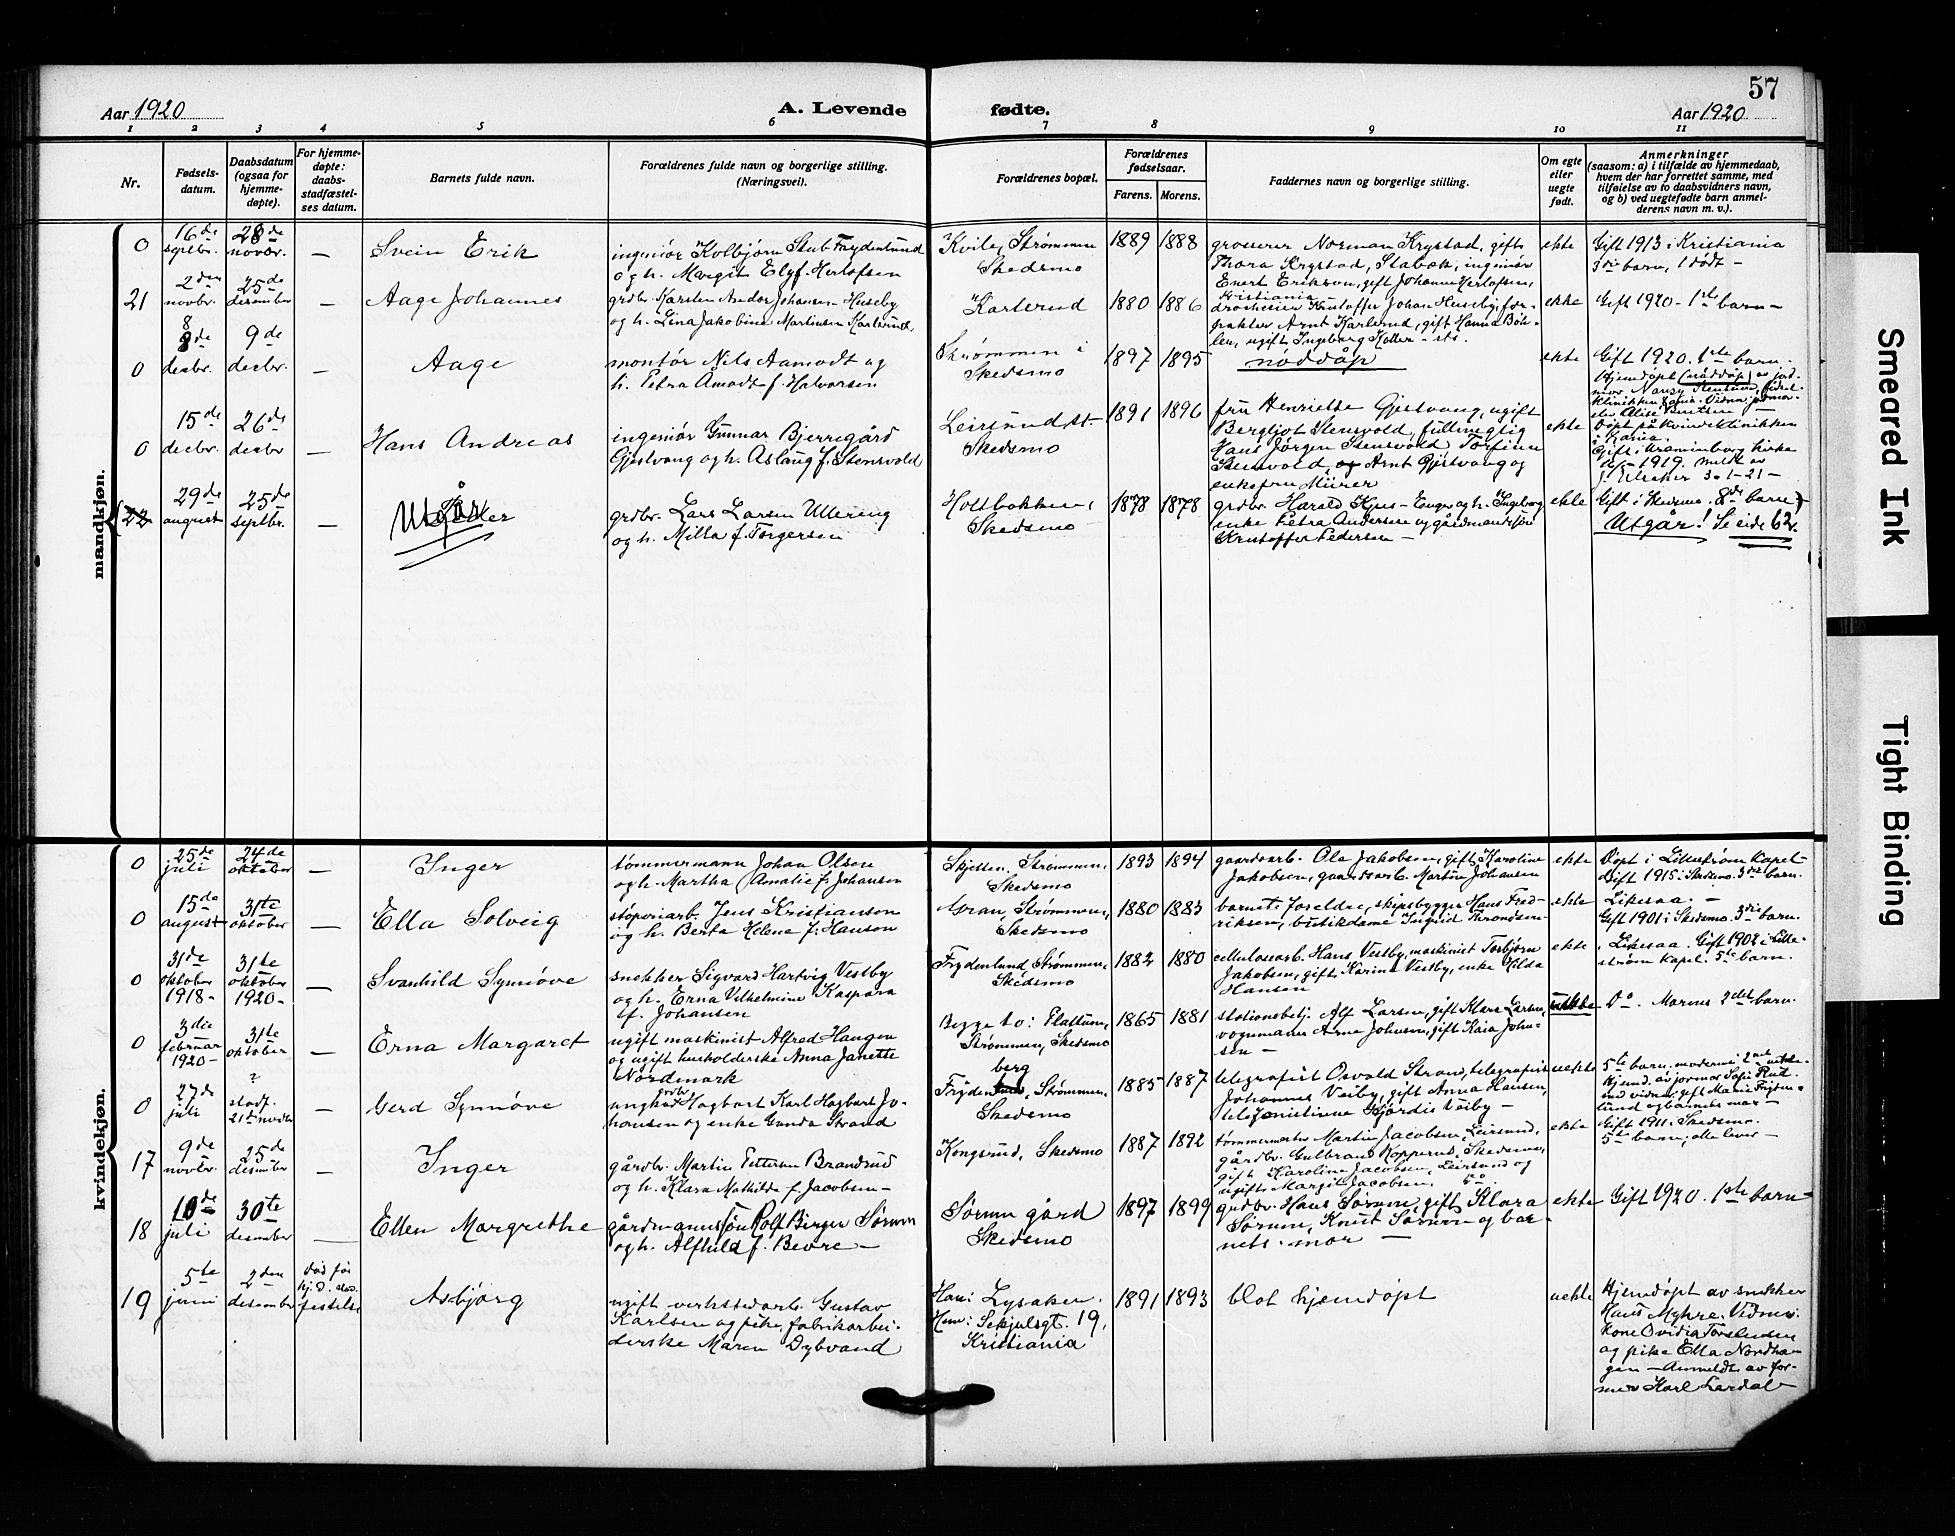 57
Aar 1920
A. Levende fødte.
Aar 1920
1 2 3 4 5 6 7 8 9 10 11
Nr.
Fødsels-
datum.
Daabsdatum
(ogsaa for
hjemme-
døpte).
For hjemme-
døpte:
daabs-
stadfæstel-
ses datum.
Barnets fulde navn.
Forældrenes fulde navn og borgerlige stilling.
(Næringsvei).
Forældrenes bopæl.
Forældrenes
fødselsaar.
Farens. Morens.
Faddernes navn og borgerlige stilling.
Om egte
eller
uegte
født.
Anmerkninger
(saasom: a) i tilfælde av hjemmedaab,
hvem der har forrettet samme, med
tilføielse av to daabsvidners navn,
og b) ved uegtefødte barn anmel-
derens navn m. v.).
mandkjøn.
0
16de
septbr.
28de
novbr.
—
Svein Erik
ingeniør Kolbjørn Stub Frydenlund
og h. Margit Elg f. Herlofsen
Kvile, Strømmen
Skedsmo
1889 1888
grosserer Norman Krystad, gift
Thora Krystad, Stabæk, ingeniør
Enert Erikson, gift Johanne Herlofsen,
Kristiania
ekte
Gift 1913 i Kristiania
3die barn, 1 dødt —
21
2den
novbr.
25de
desember
—
Aage Johannes
grdbr. Karsten Andor Johansen Huseby
og h. Lina Jakobine Martinsen Karlsrud
Karlerud
1880 1886
Kristoffer Johan Huseby, for-
pakter Arnt Karlerud, gift Hanna Böh-
ler, ugift Ingeborg Holter
ekte
Gift 1920 - 1ste barn —
0
8de
desbr.
9de
desbr.
—
Aage
montør Nils Aamodt og
h. Petra Åmodt f. Halvorsen
Strømmen i
Skedsmo
1897 1895
nøddåp
ekte
Gift 1920. 1ste barn.
Hjemdøpt (nøddåp) av jord-
mor
0
15de
desbr.
26de
desbr
—
Hans Andreas
ingeniør Gunnar Bjerregård
Gjestvang og h. Aslaug f. Stensvold
Leirsund st.
Skedsmo
1891 1896
fru Henriette Gjestvang, ugift
Bergljot Stensvold, fullmegtig
Hans Jörgen Stensvold Torfinn
Stensvold, og Arnt Gjestvang og
enkefru Mürer
ekte
Døpt på kvindeklinikken
i Kania.
Gift i Aronimborg kirke
1919. meldt av
3-1-21 —
22
29de
august
25de
septbr.
—
Utgår
grdbr. Lars Larsen Ullering
og h. Milla f. Torgersen
Holtbakken,
Skedsmo
1878 1878
grdbr. Harald Kjus - Enger og h. Ingeborg
enke Petra Andersen og gårdmandssøn
Kristoffer Pedersen —
ekte
Gift i Skedsmo. 8de barn
Utgår! Se side 62.
kvindekjøn.
0
25de
juli
24de
oktober
—
Inger
tømmermann Johan Olsen
og h. Martha Amalie f. Johansen
Skjetten, Strømmen,
Skedsmo
1893 1894
gaardsarb. Ole Jakobsen, gift Karoline
Jakobsen, gaardsarb. Martin Johansen
ekte
Døpt i Lillestrøm kapel -
Gift 1915 i Skedsmo. 3die barn.
0
15de
august
31te
oktober
—
Ella Solveig
støperiarb. Jens Kristiansen
og h. Berta Helene f. Hanson
Gran, Strømmen,
Skedsmo
1880 1883
barnets foreldre, skipsbygger Hans Fred-
riksen, butikdame Ingrid Throndsen -
ekte
Likesaa. —
Gift 1901 i Skedsmo. 3die barn.
0
31te
oktober
1918 -
31te
oktober
1920 -
—
Svanhild Synnöve
snekker Sigvard Hartvig Vestby
og h. Erna Vilhelmine Kaspara
f. Johansen
Frydenlund, Strømmen,
Skedsmo
1882 1880
cellulosearb. Hans Vestby, maskinist Torbjørn
Jakobsen, gift Karine Vestby, enke Hilda
Hansen
ekte
Likesaa. Gift 1902 i Lille-
strøm kapel. 5te barn.
0
3die
februar
1920 -
31te
oktober
—
Erna Margaret
ugift maskinist Alfred Haugen
og ugift husholderske Anna Janette
Nordmark
Begge to: Flattum,
Strømmen, Skedsmo
1865 1881
stationsbetj. Alf Larsen, gift Klara Larsen,
vognmann Arne Johnsen, gift Kaia John-
sen —
uekte
Do. Morens 2det barn.
0
27de
juli
?
stadf.
21de novbr
—
Gerd Synnöve
ungkar Hagbart Karl Hagbart Jo-
hansen og enke Gunda Strand
Frydenberg, Strømmen,
Skedsmo
1885 1887
telegrafist Osvald Strand, telegrafist
Johannes Veiby, gift Anna Hansen,
Hjördis Veiby —
uekte
5te barn, moderens 2net uekte.
Hjemd. av jormor Sofie Rut.
med vidner: gift Marie Fryden-
lund og barnets mor —
17
9de
novbr.
25de
desember
—
Inger
gårdbr. Martin Pettersen Brandsrud
og h. Klara Mathilde f. Jacobsen —
Kongsrud, Skedsmo
1887 1892
tømmermester Martin Jacobsen, Leirsund,
gårdbr. Gulbrand Kopperud, Skedsmo,
gift Karoline Jacobsen, Leirsund og
ugift Margit Jacobsen,
ekte
Gift 1911. Skedsmo.
5te barn; alle lever —
18
10de
juli
30te
desember
—
Ellen Margrethe
gårdmannssøn Rolf Birger Sørum
og h. Alfhild f. Bevre —
Sørum gård
Skedsmo
1897 1899
grdbr. Hans Sørum, gift Klara
Sørum, Knut Sørum og bar-
nets mor —
ekte
Gift 1920. 1ste barn
19
5te
juni
2den
desember
død før
hj.d. stad-
festelse
Asbjørg
ugift verkstedarb. Gustav
Karlsen og pike, fabrikarbei-
derske Maren Dybvand
Han: Lysaker.
Hun: Schjulsgt. 19,
Kristiania
1891 1893
blot hjemdøpt
uekte
Hjemdøpt av snekker
Hans Myhre. Vidner:
kone Ovidia Torstensen
og pike Ella Nordha-
gen — Anmeldt av for-
mer Karl Lerdal —
Smeared Ink
Tight Binding